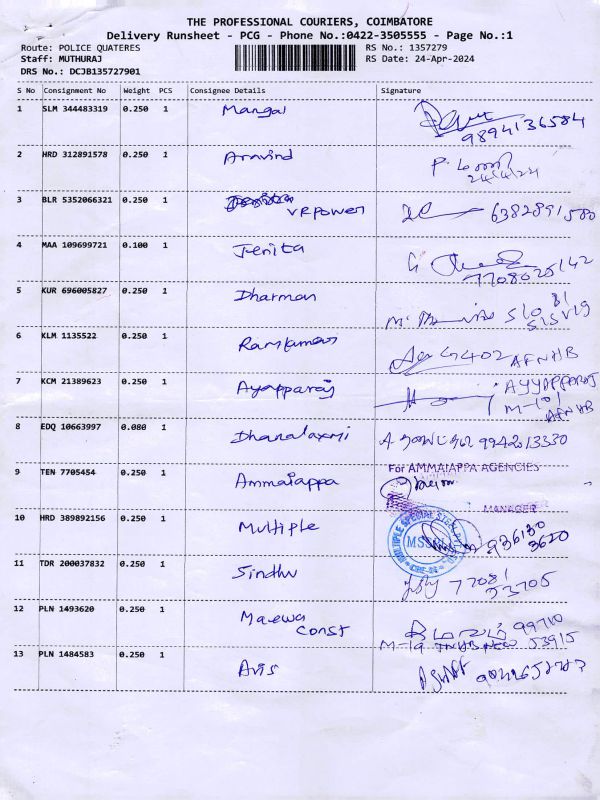 THE PROFESSIONAL COURIERS, COIMBATORE
Delivery Runsheet - PCG - Phone No.:0422-3505555 - Page No.:1
Route: POLICE QUATERES
RS No.: 1357279
Staff: MUTHURAJ
RS Date: 24-Apr-2024
DRS No.: DCJB135727901
S No Consignment No Weight PCS Consignee Details Signature
1 SLM 344483319 0.250 1 Mangal
9894136584
2 HRD 312891578 0.250 1 Aravind
24/4/24
3 BLR 5352066321 0.250 1 VRPower 6382891580
4 MAA 109699721 0.100 1 Jenita
7708025142
5 KUR 696005827 0.250 1 Dharman
6 KLM 1135522 0.250 1 Ramkumar 4402 AFNHB
7 KCM 21389623 0.250 1 Ayapparaj AYYAPPARAJ
M-101
AFNHB
8 EDQ 10663997 0.080 1 Dhanalaxmi 9942213330
9 TEN 7705454 0.250 1 Ammaiappa
For AMMAIAPPA AGENCIES
MANAGER
10 HRD 389892156 0.250 1 Multiple
MULTIPLE SPECIAL
936130
3620
11 TDR 200037832 0.250 1 Sindhu 77081
53705
12 PLN 1493620 0.250 1 Maewa
Const
99710
M-19 TNHB 53915
13 PLN 1484583 0.250 1 Avis